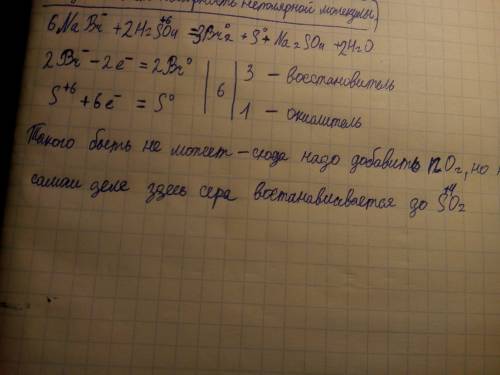 полярность неполярной молекулы)
6NaBr⁻ + 2H₂S⁺⁶O₄ = 3Br₂⁰ + S⁰ + Na₂SO₄ + 2H₂O
2Br⁻ - 2e⁻ = 2Br⁰ | 6 | 3 - восстановитель
S⁺⁶ + 6e⁻ = S⁰ | | 1 - окислитель
Такого быть не может - сюда надо добавить nO₂, но
самом деле здесь сера востанавливается до S⁺⁴O₂